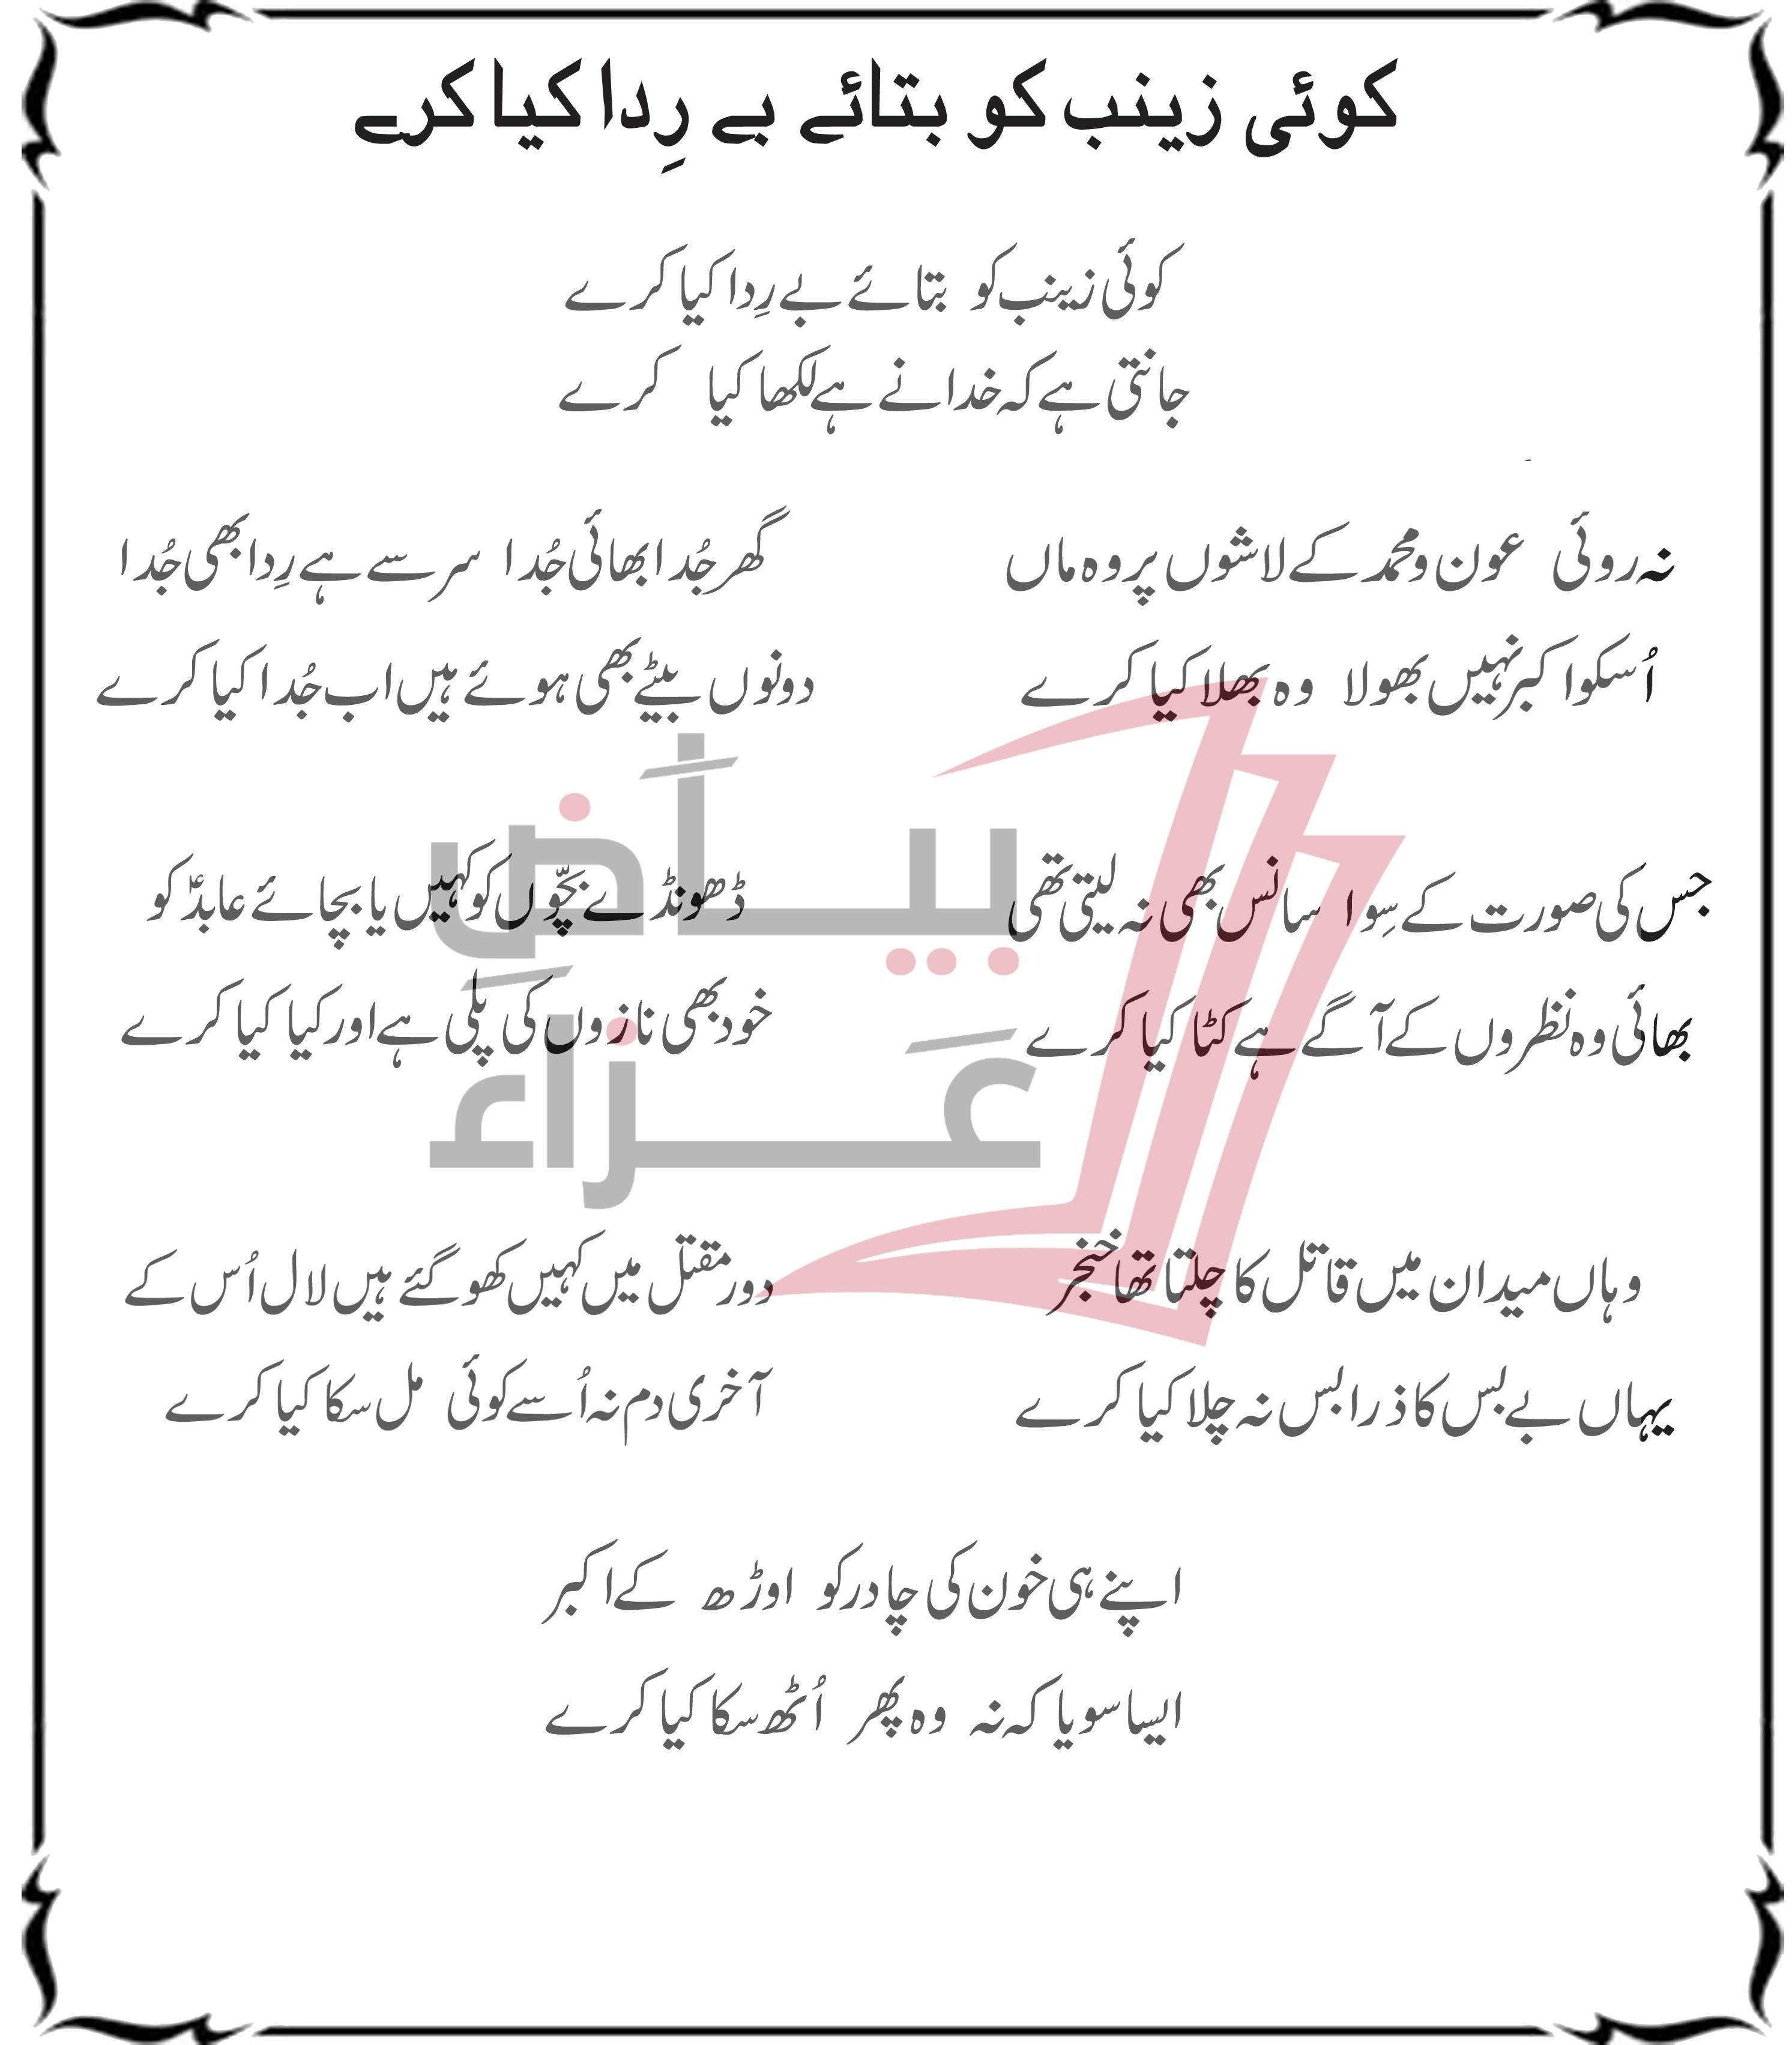 کوئی زینب کو بتائے بے رِدا کیا کرے
کوئی زینب کو بتائے بے رِدا کیا کرے
جانتی ہے کہ خدا نے ہے لکھا کیا کرے
نہ روئی عون و محمد کے لاشوں پر وہ ماں
اُسکو اکبر نہیں بھولا وہ بھلا کیا کرے
گھر جُدا بھائی جُدا سر سے ہے رِدا بھی جُدا
دونوں بیٹے بھی ہوئے ہیں اب جُدا کیا کرے
جس کی صورت کے سِوا سانس بھی نہ لیتی تھی
بھائی وہ نظروں کے آگے ہے کٹا کیا کرے
ڈھونڈے بچّوں کو کہیں یا بچائے عابدؑ کو
خود بھی نازوں کی پلی ہے اور کیا کیا کرے
وہاں میدان میں قاتل کا چلتا تھا خنجر
یہاں بے بس کا ذرا بس نہ چلا کیا کرے
دور مقتل میں کہیں کھو گئے ہیں لال اُس کے
آخری دم نہ اُسے کوئی مل سکا کیا کرے
اپنے ہی خون کی چادر کو اوڑھ کے اکبر
ایسا سویا کہ نہ وہ پھر اُٹھ سکا کیا کرے
بیاض
عزاء